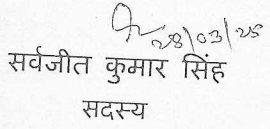 28/03/25
सर्वजीत कुमार सिंह
सदस्य